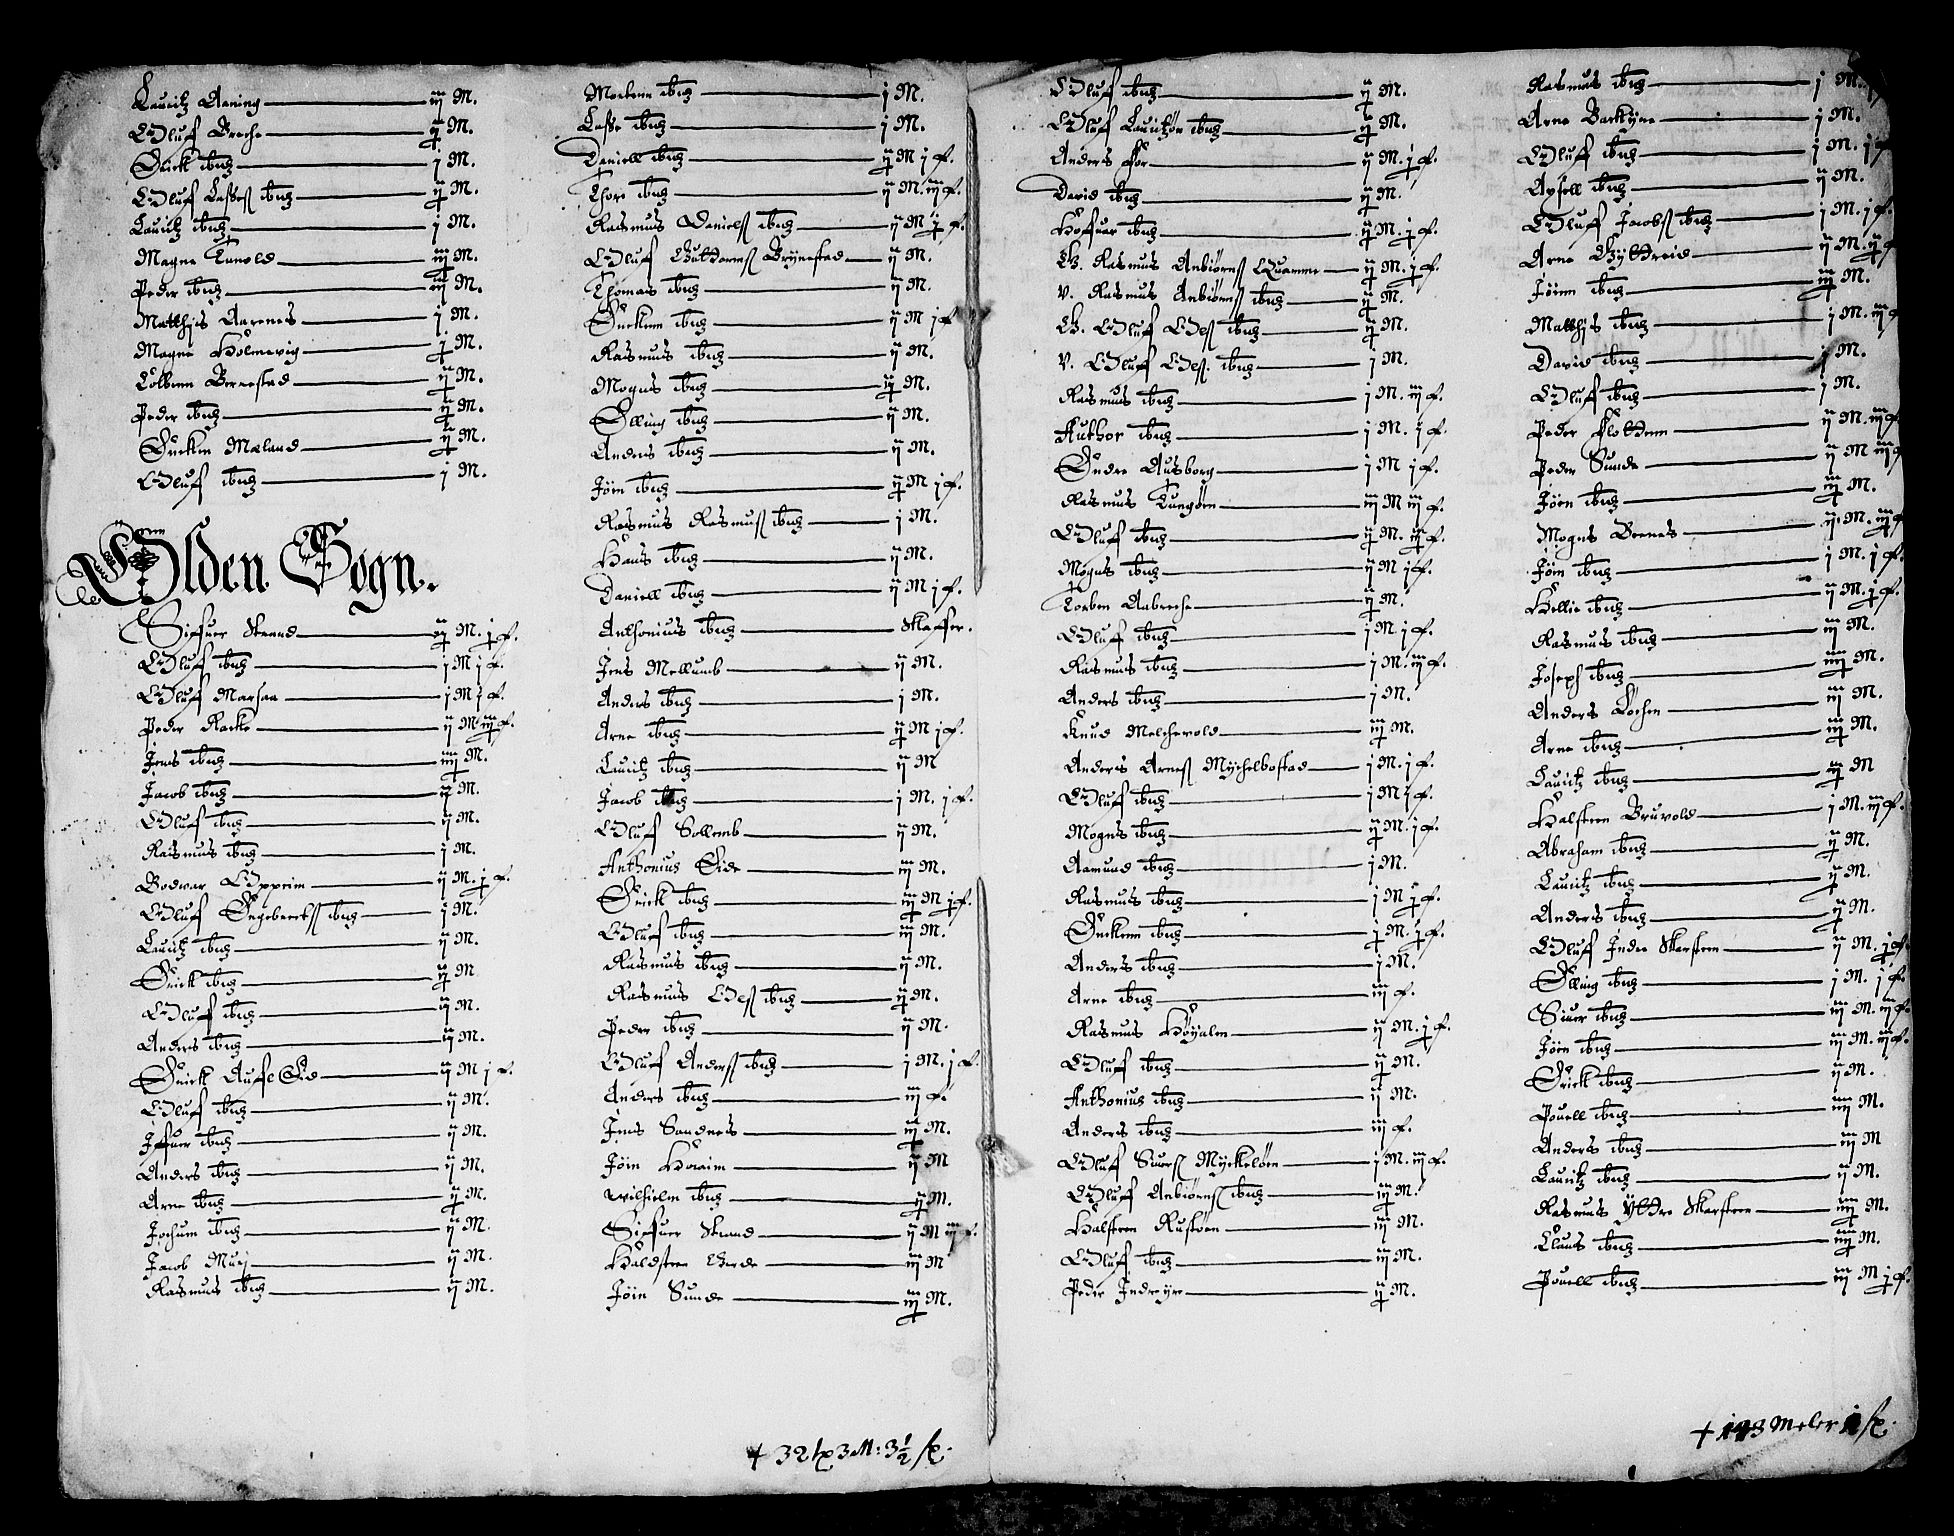 Lauritz Aaning — iij M.
Oluf Breche — ij M.
Erick ibid — j M.
Oluf Lasses ibid — ij M.
Lauritz ibid — j M.
Magne Tunold — iij M.
Peder ibid — iij M.
Matthis Aarenes — j M.
Magne Holmevig — j M.
Colbenn Berrestad — ij M.
Peder ibid — ij M.
Erchen Mæland — ij M.
Oluf ibid — j M.
Olden Sogn.
Siffuer Strand — ij M. j f.
Oluf ibid — j M j f.
Oluf Marsaa — j M j f.
Peder Racke — ij M iij f.
Jens ibid — iiij M.
Jacob ibid — ij M.
Oluf ibid — ij M.
Rasmus ibid — j M.
Bodwar Opprim — ij M. j f.
Oluf Engebretss ibid — j M.
Lauritz ibid — ij M.
Erick ibid — ij M
Oluf ibid — ij M.
Anders ibid — iij M.
Erick Aufl Eid — ij M j f.
Oluf ibid — ij M.
Iffuer ibid — ij M.
Anders ibid — ij M.
Arne ibid — ij M.
Jochum ibid — ij M.
Jacob Muri — ij M.
Rasmus ibid — ij M.
Mortenn ibid — j M.
Lasse ibid — j M.
Daniell ibid — ij M j f.
Thore ibid — ij M. iij f.
Rasmus Daniels ibid — ij M j f.
Oluf Guttorms Brynestad — ij M.
Thomas ibid — ij M.
Erckenn ibid — ij M j f.
Rasmus ibid — ij M.
Mogns ibid — ij M.
Elling ibid — ij M.
Anders ibid — ij M.
Jören ibid — ij M j f.
Rasmus Rasmuss ibid — j M.
Hans ibid — ij M.
Daniell ibid — ij M j f.
Anthonius ibid — Skaffer.
Jens Mellumb — ij M.
Anders ibid — j M.
Arne ibid — ij M j f.
Lauritz ibid — ij M
Jacob ibid — j M. j f.
Oluf Sollemb — ij M.
Anthonius Eide — iij M.
Erick ibid — iij M j f.
Oluf ibid — iij M.
Rasmus ibid — ij M.
Rasmus Oless ibid — ij M.
Peder ibid — ij M.
Oluf Anderss ibid — j M. j f.
Anders ibid — iij f.
Jens Sandnes — iij M.
Jören Horaim — ij M
Wilhelm ibid — ij M.
Siffuer Strand — ij M iij f.
Haldsten Gierde — iij M
Jören Sunde — iij M.
+ 32 lx 3 M: 3½ sx.
Oluf ibid — ij M.
Oluf Lauritzøn ibid — ij M.
Anders For — ij M. j f.
David ibid — ij M.
Hofuar ibid — ij M. j f.
G. Rasmus Anbiørns Quamme — ij M. j f.
V. Rasmus Anbiørns ibid — ij M.
G. Oluf Oless ibid — ij M.
V. Oluf Oless. ibid — j M.
Rasmus ibid — j M. iij f.
Author ibid — j M. j f.
Endre Ausborg — j M j f.
Rasmus Tungøen — iij M iij f.
Oluf ibid — ij M. iij f.
Mogns ibid — ij M j f.
Torben Aabreche — ij M.
Oluf ibid — j M j f.
Rasmus ibid — j M. iij f.
Anders ibid — j M.
Knud Melchevold — iij M.
Anders Arness Mychelbostad — j M. j f.
Oluf ibid — j M j f.
Mogns ibid — ij M. j f.
Aamund ibid — j M.
Rasmus ibid — j M j f.
Erckenn ibid — j M. j f.
Anders ibid — j M.
Arne ibid — iij f.
Rasmus Høyalm — ij M. j f.
Oluf ibid — ij M.
Anthonius ibid — ij M.
Anders ibid — iij f.
Oluf Siuers Myckeløen — j M. iij f.
Oluf Anbiørns ibid — iij M.
Halsteen Rustøen — iij M.
Oluf ibid — iij M.
Peder Indreyre — ij M.
Rasmus ibid — j M.
Arne Barkyne — j M.
Oluf ibid — j M. j f
Axsell ibid — ij M.
Oluf Jacobs ibid — j M. j f.
Arne Gyttreid — ij M. ij f
Jörenn ibid — iij M.
Matthis ibid — j M. iij f
David ibid — j M.
Oluf ibid — j M.
Peder Flottenn — ij M. iij f
Peder Sunde — ij M iij f
Jören ibid — iij M.
Mogns Brenes — ij M. iij f
Jören ibid — j M. j f.
Hellie ibid — ij M. j f.
Rasmus ibid — iij M.
Joseph ibid — iiij M.
Anders Lochen — iij M.
Arne ibid — iij M.
Lauritz ibid — ij M
Halsteen Bruvold — j M. iij f.
Abraham ibid — ij M.
Lauritz ibid — ij M.
Anders ibid — ij M.
Oluf Indre Skarsteen — ij M. j f.
Elling ibid — j M. j f.
Siuer ibid — iij M. iij f.
Jören ibid — iij M. iij f.
Erick ibid — ij M.
Pouell ibid — iiij M.
Anders ibid — iij M
Lauritz ibid — ij M.
Rasmus Yttre Skarsteen — iiij M.
Claus ibid — iiij M.
Pouell ibid — iij M j f.
+ 148 Meler 1 sx.